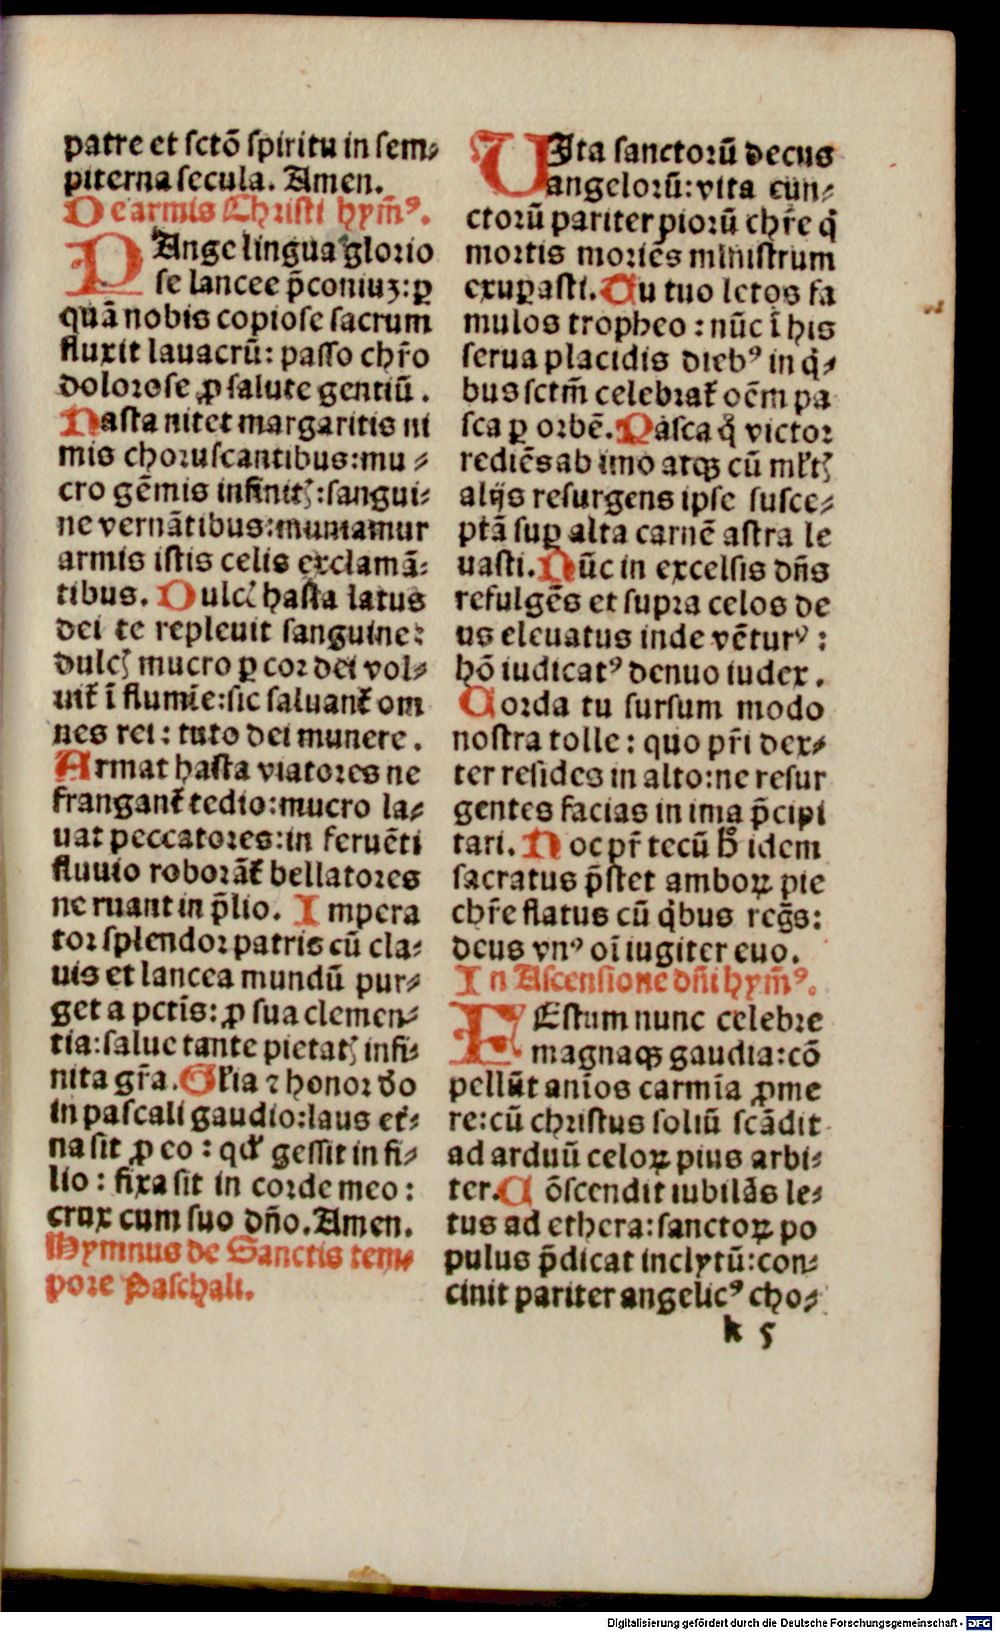 patre et sctō spiritu in sem⸗
piterna secula. Amen.
De armis Christi hym̄ꝰ.
PAnge lingua glorio
se lancee p̄coniuȝ: ꝑ
quā nobis copiose sacrum
fluxit lauacrū: passo chr̄o
dolorose ꝓ salute gentiū.
Hasta nitet margaritis ni
mis choruscantibus: mu⸗
cro gēmis infinitꝭ: sangui⸗
ne vernātibus: muniamur
armis istis celis exclamā⸗
tibus. Dulcꝭ hasta latus
dei te repleuit sanguine:
dulcꝭ mucro ꝑ cor dei vol⸗
uit᷑ ī flumīe: sic saluant᷑ om
nes rei: tuto dei munere.
Armat hasta viatores ne
frangant᷑ tedio: mucro la⸗
uat peccatores: in feruēti
fluuio roborāt᷑ bellatores
ne ruant in p̄lio. Impera
tor splendor patris cū cla⸗
uis et lancea mundū pur⸗
get a pctīs: ꝓ sua clemen⸗
tia: salue tante pietatꝭ infi⸗
nita gr̄a. Gl'ia ⁊ honor do
in pascali gaudio: laus et'⸗
na sit ꝓ eo: qd' gessit in fi⸗
lio: fixa sit in corde meo:
crux cum suo dn̄o. Amen.
Hymnus de Sanctis tem⸗
pore Paschali.
VIta sanctorū decus
angelorū: vita cun⸗
ctorū pariter piorū chr̄e q̇
mortis moriēs ministrum
exuꝑasti. Tu tuo letos fa
mulos tropheo: nūc ī his
serua placidis diebꝰ in q̇⸗
bus sctm̄ celebrat᷑ oēm pa
sca ꝑ orbē. Pasca q̇ victor
rediēs ab imo atqꝫ cū ml'tꝭ
alijs resurgens ipse susce⸗
ptā suꝑ alta carnē astra le
uasti. Nūc in excelsis dn̄s
refulgēs et supra celos de
us eleuatus inde vēturꝰ:
hō iudicatꝰ denuo iudex.
Corda tu sursum modo
nostra tolle: quo pr̄i dex⸗
ter resides in alto: ne resur
gentes facias in ima p̄cipi
tari. Hoc pr̄ tecū hͦ idem
sacratus p̄stet amboꝝ pie
chr̄e flatus cū q̇bus regn̄s:
deus vnꝰ oī iugiter euo.
In Ascensione dn̄i hym̄ꝰ.
FEstum nunc celebre
magnaqꝫ gaudia: cō
pellūt anīos carmīa ꝓme
re: cū christus soliū scādit
ad arduū celoꝝ pius arbi⸗
ter. Cōscendit iubilās le⸗
tus ad ethera: sanctoꝝ po
pulus p̄dicat inclytū: con⸗
cinit pariter angelicꝰ cho⸗
k 5
Digitalisierung gefördert durch die Deutsche Forschungsgemeinschaft - DFG